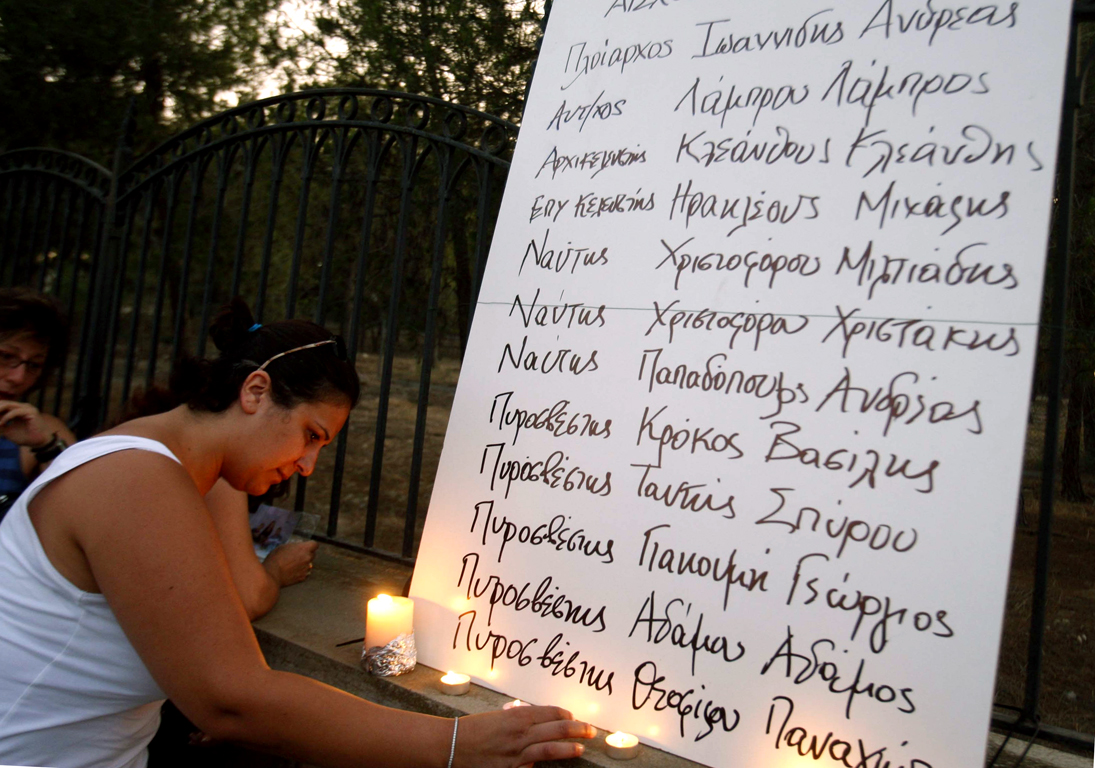 Πλοίαρχος Ιωαννίδης Ανδρέας
Αντ/χος Λάμπρου Λάμπρος
Αρχικελευστής Κλεάνθους Κλεάνθης
Επικελευστής Ηρακλέους Μιχάλης
Ναύτης Χριστοφόρου Μιλτιάδης
Ναύτης Χριστοφόρου Χριστάκης
Ναύτης Παπαδόπουλος Ανδρέας
Πυροσβέστης Κρόκος Βασίλης
Πυροσβέστης Ταντής Σπύρου
Πυροσβέστης Γιακουμή Γεώργιος
Πυροσβέστης Αδάμου Αδάμος
Πυροσβέστης Θεοφίλου